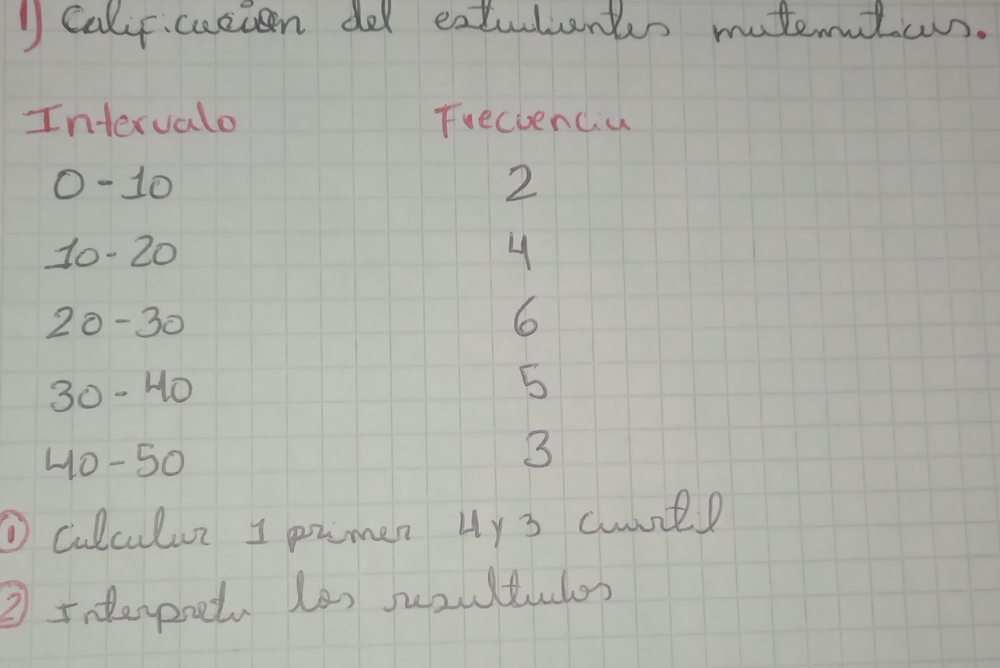 1) Calificación del estudiantes matematicas.
Intervalo Frecuencia
0-10 2
10-20 4
20-30 6
30-40 5
40-50 3
① Calcular 1 primer 4 y 3 cuartil
② Interpreta los resultados